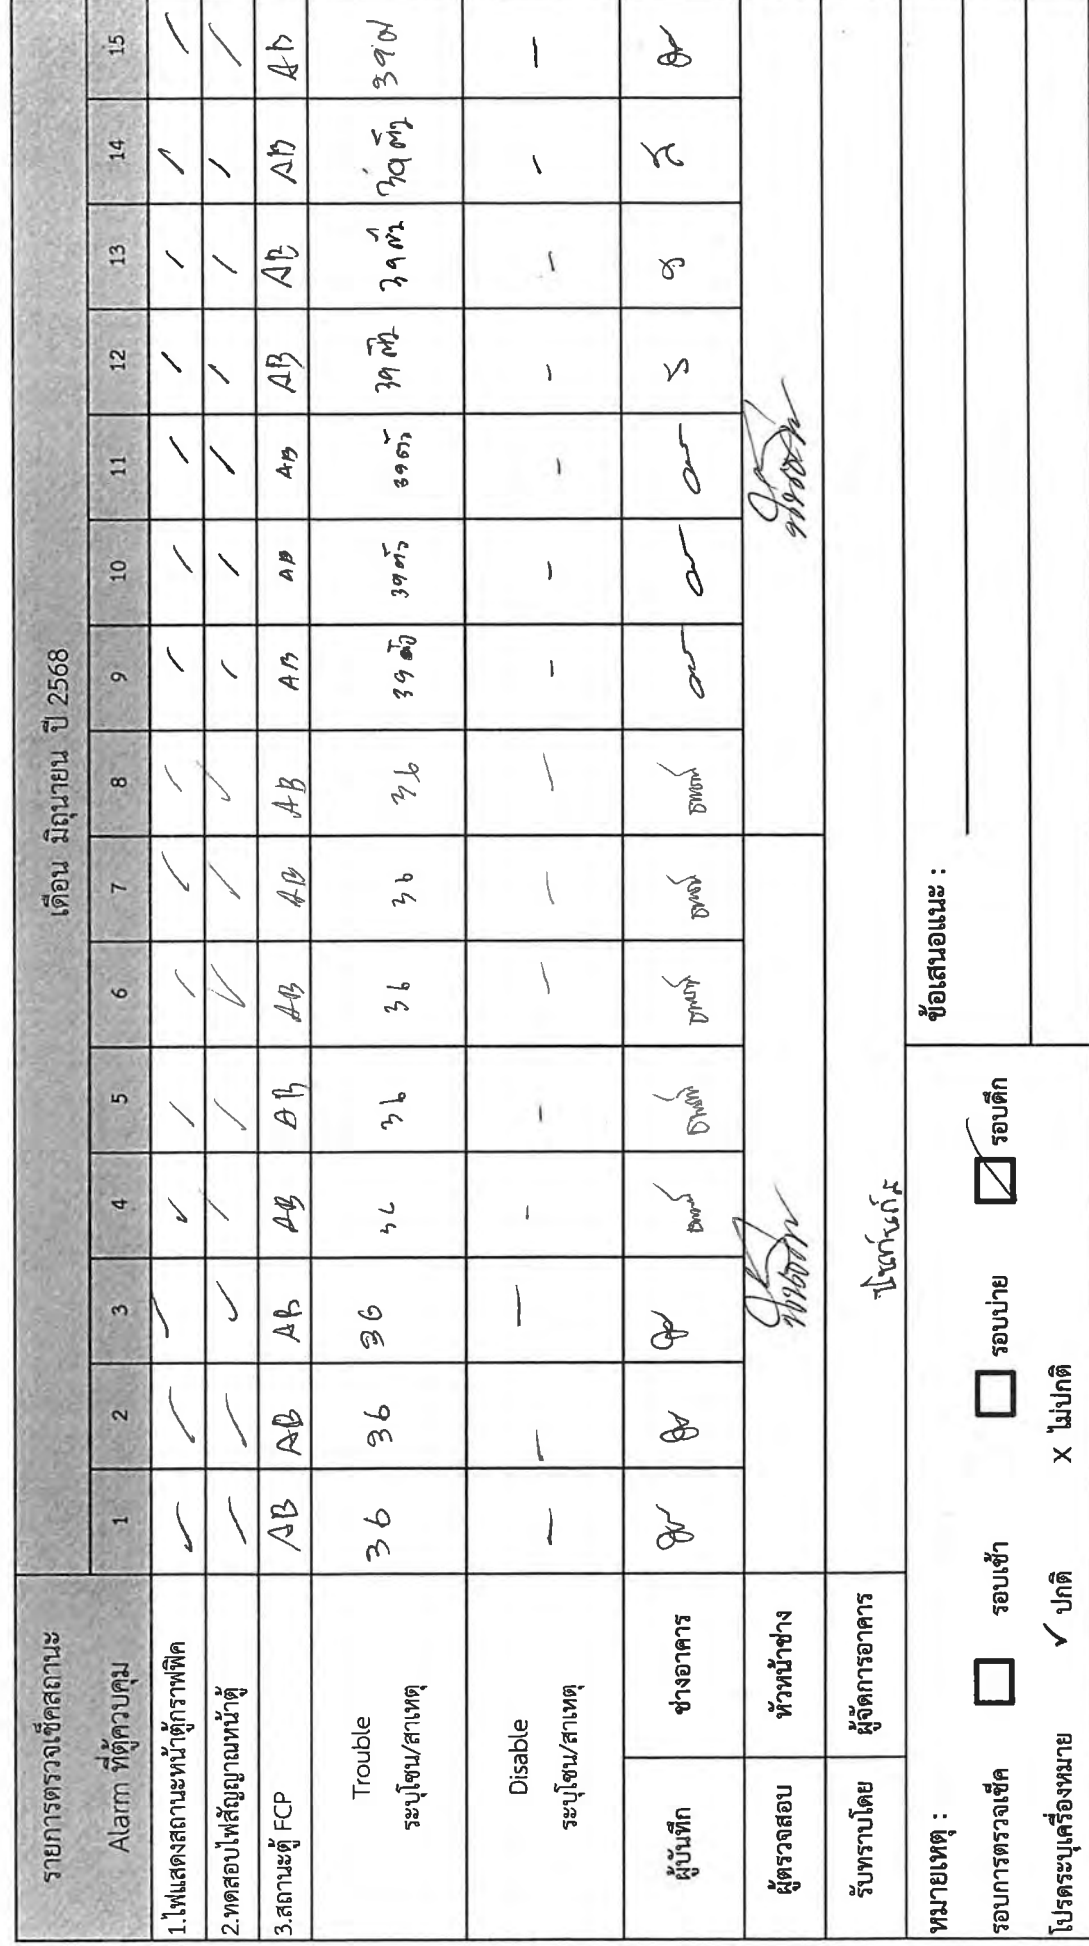 รายการตรวจเช็คสถานะ
Alarm ที่ตู้ควบคุม
เดือน มิถุนายน ปี 2568
1 2 3 4 5 6 7 8 9 10 11 12 13 14 15
1.ไฟแสดงสถานะหน้าตู้กราฟฟิค ✓ ✓ ✓ ✓ ✓ ✓ ✓ ✓ ✓ ✓ ✓ ✓ ✓ ✓ ✓
2.ทดสอบไฟสัญญาณหน้าตู้ ✓ ✓ ✓ ✓ ✓ ✓ ✓ ✓ ✓ ✓ ✓ ✓ ✓ ✓ ✓
3.สถานะตู้ FCP AB AB AB AB AB AB AB AB AB AB AB AB AB AB AB
Trouble
ระบุโซน/สาเหตุ
36 36 36 36 36 36 36 36 39 ตัว 39 ตัว 39 ตัว 39 ตัว 39 ตัว 39 ตัว 39
Disable
ระบุโซน/สาเหตุ
- - - - - - - - - - - - - - -
ผู้บันทึก ช่างอาคาร
ผู้ตรวจสอบ หัวหน้าช่าง
รับทราบโดย ผู้จัดการอาคาร
หมายเหตุ : ข้อเสนอแนะ :
รอบการตรวจเช็ค รอบเช้า รอบบ่าย ✓ รอบดึก
โปรดระบุเครื่องหมาย ✓ ปกติ x ไม่ปกติ